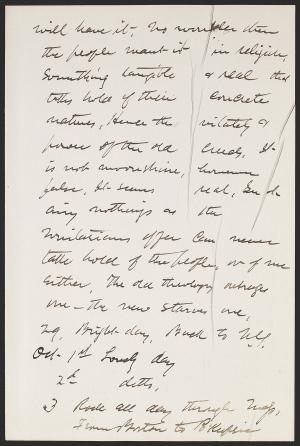 will have it. No wonder then
the people want it in religion,
Something tangible & real that
takes hold of their concrete
natures, Hence the vitality &
power of the old creeds. It
is not moonshine, however
false. It seems real, Such
airy nothings as the
Unitarians offer can never
take hold of the people, or of me
either, The old theology outrages
one – the new starves one,
29, Bright day, Back to N.Y.
Oct. 1st Lovely day
2d ditto,
3 Rode all day through Mass,
from Boston to